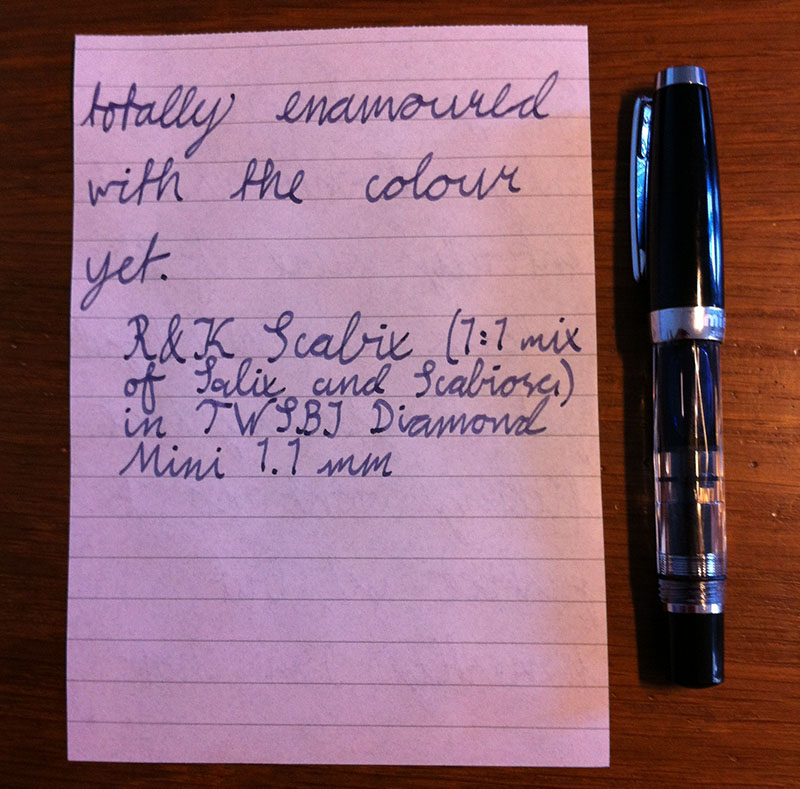 totally enamoured
with the colour
yet.
R&K Scabix (1:1 mix
of Salix and Scabiosa)
in TWSBI Diamond
Mini 1.1 mm
mi